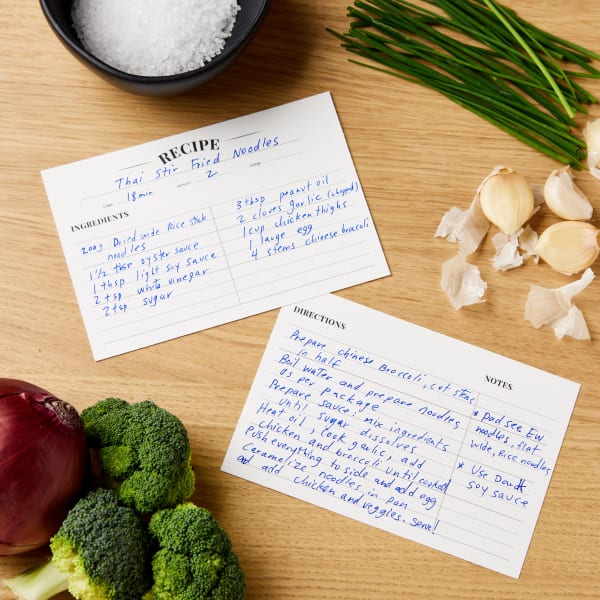 RECIPE
Thai Stir Fried Noodles
TIME 18 min SERVES 2 TEMP
INGREDIENTS
200g Dried wide Rice Stick
noodles
1 1/2 tbsp oyster sauce
1 tbsp light soy sauce
2 tsp white vinegar
2 tsp sugar
3 tbsp peanut oil
2 cloves garlic (chopped)
1 cup chicken thighs
1 large egg
4 stems chinese broccoli
DIRECTIONS
Prepare chinese Broccoli, cut stems
in half
Boil water and prepare noodles
as per package
Prepare sauce: mix ingredients
until sugar dissolves
Heat oil, cook garlic, add
chicken and broccoli until cooked
Push everything to side and add egg
Caramelize noodles in pan
and add chicken and veggies. Serve!
NOTES
* Pad see Ew
noodles, flat
wide, Rice noodles
* Use Dark
soy sauce